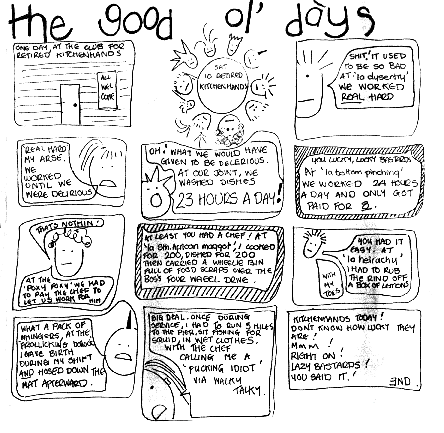 the good ol' days
ONE DAY, AT THE CLUB FOR
RETIRED KITCHENHANDS
ALL
WEL
COME
SAT
10 RETIRED
KITCHENHANDS
SHIT, IT USED
TO BE SO BAD
AT 'la dysentry'
WE WORKED
REAL HARD
REAL HARD
MY ARSE.
WE
WORKED
UNTIL WE
WERE DELIRIOUS
OH! WHAT WE WOULD HAVE
GIVEN TO BE DELERIOUS.
AT OUR JOINT, WE
WASHED DISHES
23 HOURS A DAY!
YOU LUCKY, LUCKY BASTARDS
At 'la bottom pinching'
WE WORKED 24 HOURS
A DAY AND ONLY GOT
PAID FOR 2.
THAT'S NOTHIN'!
AT THE
'POXY POXY' WE HAD
TO PAY THE CHEF TO
LET US WORK FOR HIM
AT LEAST YOU HAD A CHEF! AT
'la 8th African maggot', I COOKED
FOR 200, DISHED FOR 200
THEN CARRIED A WHEELIE BIN
FULL OF FOOD SCRAPS OVER THE
BOSS' FOUR WHEEL DRIVE.
YOU HAD IT
EASY. AT 'la
heirachy'
I HAD TO RUB
THE RIND OFF
A BOX OF LEMONS
WITH
MY
TOES
WHAT A PACK OF
AT THE
I GAVE BIRTH
DURING MY SHIFT
AND HOSED DOWN THE
MAT AFTERWARD.
BIG DEAL. ONCE DURING
SERVICE, I HAD TO RUN 5 MILES
TO THE PIER, SIT FISHING FOR
SQUID, IN WET CLOTHES.
WITH THE CHEF
CALLING ME A
'FUCKING IDIOT'
VIA WALKY
TALKY.
KITCHENHANDS TODAY!
DON'T KNOW HOW LUCKY THEY
ARE!
MMM!
RIGHT ON!
LAZY BASTARDS!
YOU SAID IT!
END